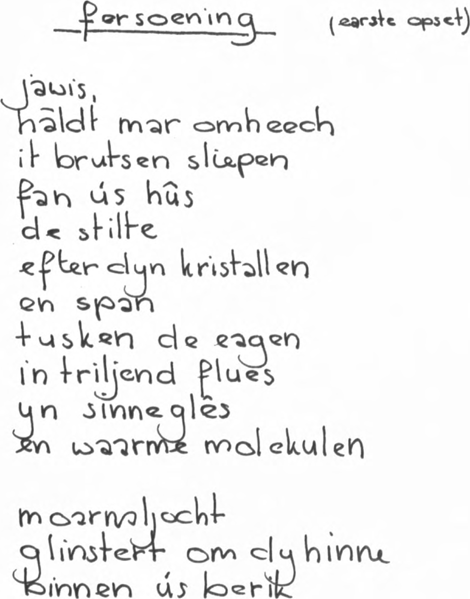 forsoening (earste opset)
jawis,
hâldt mar omheech
it brutsen sliepen
fan ús hûs
de stilte
efter dyn kristallen
en span
tusken de eagen
in triljend flues
yn sinneglês
en waarme molekulen
moarnsljocht
glinstert om dy hinne
binnen ús berik